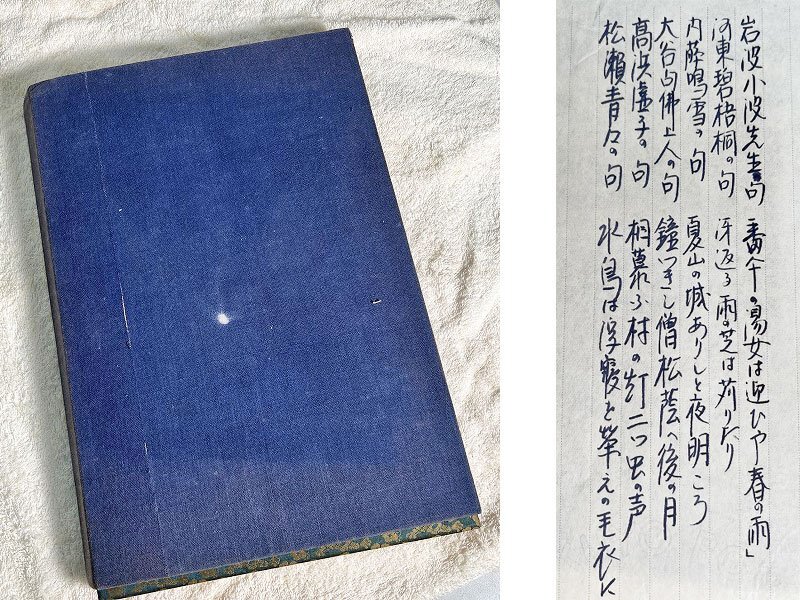 岩波小波先生句 番仐の湯女は迎ひや春の雨」
河東碧梧桐の句 冴返る雨の芝は苅りたり
内藤鳴雪の句 夏山の城ありしと夜明ころ
大谷句佛上人の句 鐘つきし僧松蔭へ後の月
高浜虚子の句 桐慕ふ村の灯二ツ虫の声
松瀬青々の句 水鳥は浮寝を栄えの毛衣に